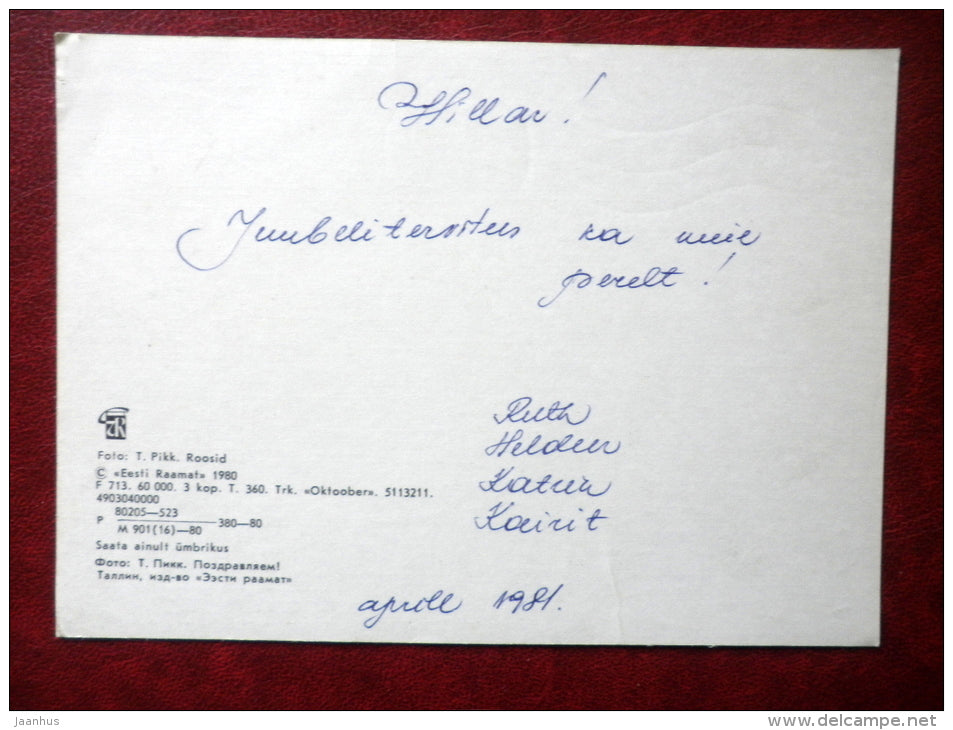 Hillar!
Juubelitervitus ka meie
perelt!
Ruth
Heldur
Katrin
Kairit
aprill 1981.
ER
Foto: T. Pikk. Roosid
© «Eesti Raamat» 1980
F 713. 60 000. 3 kop. T. 360. Trk. «Oktoober». 5113211.
4903040000
P 80205—523
M 901(16)—80 380—80
Saata ainult ümbrikus
Фото: Т. Пикк. Поздравляем!
Таллин, изд-во «Ээсти раамат»
Jaanhus
www.delcampe.net